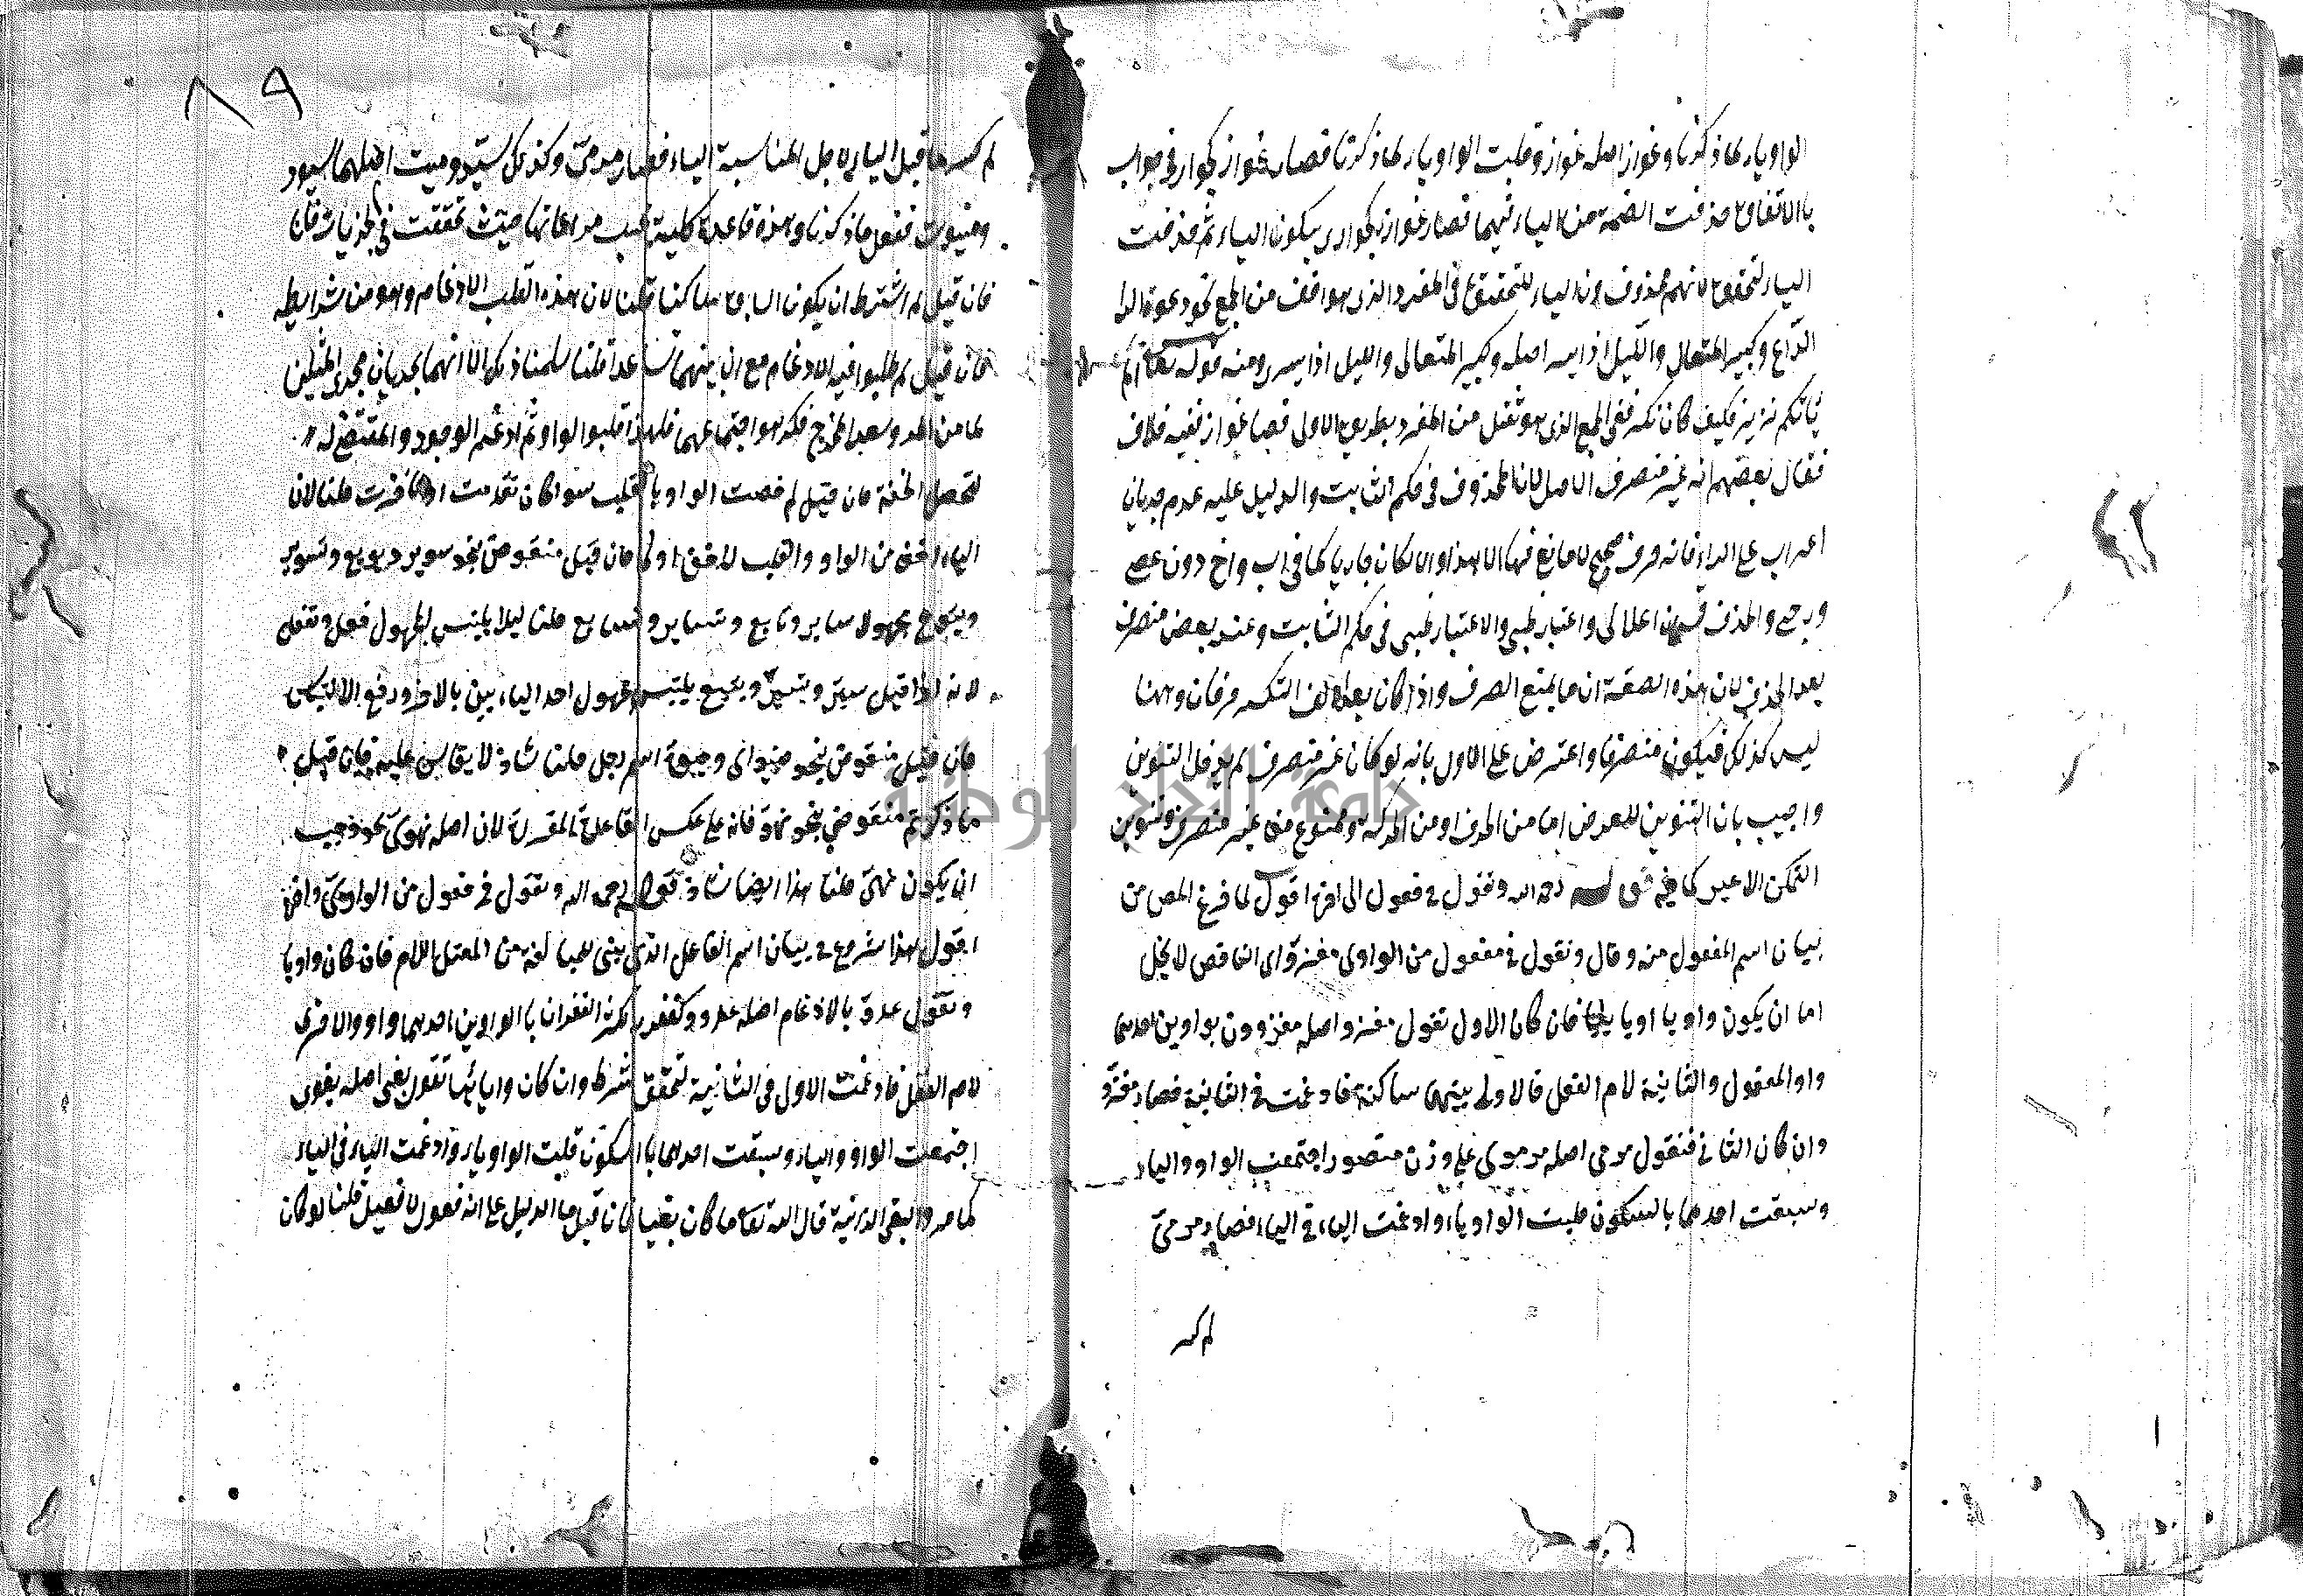 الواو ياء لما ذكرنا وغواز اصله غوازو قلبت الواو ياء لما ذكرنا فصار غوازي كجواري في جواب
بالاتفاق حذفت الضمة من الياء فيهما فصار غوازي كجواري بسكون الياء ثم حذفت
الياء للتحقيق لانهم يحذفون الياء للتحقيق في المفرد الذي هو اخف من الجمع نحو دعوة الدا
الداع وكبير المتعال والليل اذا يسر اصله وكبير المتعالي والليل اذا يسري ومنه قوله تعا الم
ياتكم نذير فكيف كان نكير ففي الجمع الذي هو ثقل من المفرد بطريق الاولى فصا غواز ففيه خلاف
فقال بعضهم انه غير منصرف الاصل لان المحذوف في حكم الثابت والدليل عليه عدم جريان
اعراب على الراء فانه حرف صحيح لا مانع فيها الا هذا والا لكان جاريا كما في اب واخ دون عصى
ورحى والحذف اعلالى واعتبار طبى والاعتبار طبى في حكم الثابت وعند بعض منصرف
بعد الحذف لان هذه الصفة ان ما يمنع الصرف واذا كان بعد الف التكسير حرفان وههنا
ليس كذلك فيكون منصرفا واعترض على الاول بانه لو كان غير منصرف لم يدخل التنوين
واجيب بان التنوين للعوض اما من الحرف او من الحركة وممنوع من غير منصرف تنوين
التمكن لا غير كما في رحمه الله ونقول في مفعول الى اخره اقول لما فرغ المص من
بيان اسم المفعول منه وقال ونقول في مفعول من الواوي مغزو اى الناقص لا يخل
اما ان يكون واويا او يا ئيا فان كان الاول نقول مغزو واصله مغزوو بواوين احديهما
واو المفعول والثانية لام الفعل فالاولى بينهما ساكنة فادغمت في الثانية فصار مغزو
وان كان الثاني فنقول مرمى اصله مرموى على وزن منصور اجتمعت الواو والياء
وسبقت احديهما بالسكون قلبت الواو ياء وادغمت الياء في الياء فصار مرمى
ثم كسر
٨٩
ثم كسر ما قبل الياء لاجل المناسبة الياء فصار مرمى وكذلك سيد وميت اصلهما سيود
وميوت ففعل ما ذكرنا وهذه قاعدة كلية يجب مراعاتها حيث تحققت في الجزئيات فان
فان قيل لم اشترط ان يكون السابق ساكنا قلنا لان هذه القلب الادغام وهو من شرايطه
فان قيل لم طلبوا فيه الادغام مع ان بينهما تباعدا قلنا سلمنا ذلك الا انهما يجريان مجرى المثلين
لما من المد وبعد المخرج فكرهوا اجتماعهما فلهذا قلبوا الواو ثم ادغم الوجود والمقتضى له
لتحصل الخفة فان قيل لم خصت الواو بالقلب سواء كان تقدمت او تاخرت قلنا لان
الياء اخف من الواو والقلب للاخف اولى فان قيل منقوض بنحو سوير وبويع وتسوير
وتبويع مجهولا ساير وبايع وتساير وتبايع قلنا ليلا يلتبس بمجهول فعل وتفعل
لانه اذا قيل سير وتسير وبيع يلتبس بمجهول احد اليايين بالاخر ودفع الالتباس
فان قيل منقوض بنحو ضيوان وحيوة اسم رجل قلنا شاذ لا يقاس عليه فان قيل
ما ذكرتم منقوض بنحو نهاة فانه على عكس القاعدة المقررة لان اصله نهوى نحو فيجب
ان يكون نهى قلنا هذا ايضا شاذ قوله رحمه الله ونقول في فعول من الواوي واخره
اقول هذا شروع في بيان اسم الفاعل الذي يبنى للمبالغة من المعتل اللام فان كان واويا
ونقول عدو بالادغام اصله عدوو كغفور بكثرة الغفران بالواوين احديهما واو والاخرى
لام الفعل فادغمت الاول في الثانية لتحقق شرط وان كان وايا ئيا تقول بغى اصله بغوى
اجتمعت الواو والياء وسبقت احديهما بالسكون قلبت الواو ياء وادغمت الياء في الياء
كما مر والبغى الزانية قال الله تعا ما كان بغيا فان قيل ما الدليل على انه فعول لا فعيل قلنا لو كان
جامعة النجاح الوطنية